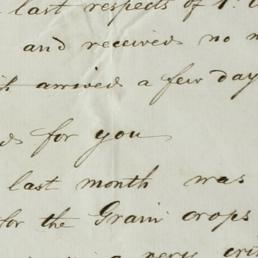 last respects of
and received no
arrived a few day
for you
last month was
for the Grain crops
a very